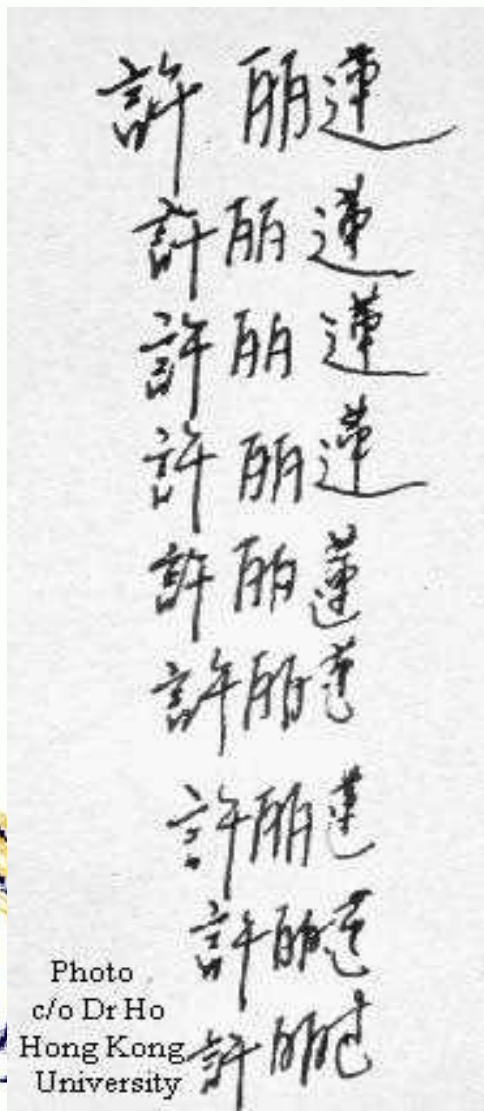 許 丽蓮
許丽蓮
許丽蓮
許丽蓮
許丽蓮
許丽蓮
許丽蓮
許丽蓮
許丽
Photo
c/o Dr Ho
Hong Kong
University